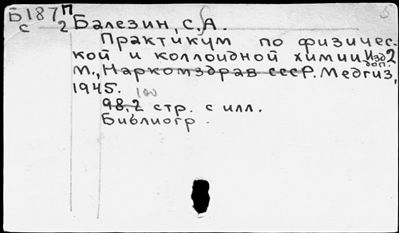 Б187п
с 2 Балезин, С.А.
Практикум по физичес-
кой и коллоидной химии. Изд 2
доп.
М., Наркомздрав СССР. Медгиз,
1945.
100
98,2 стр. с илл.
Библиогр.